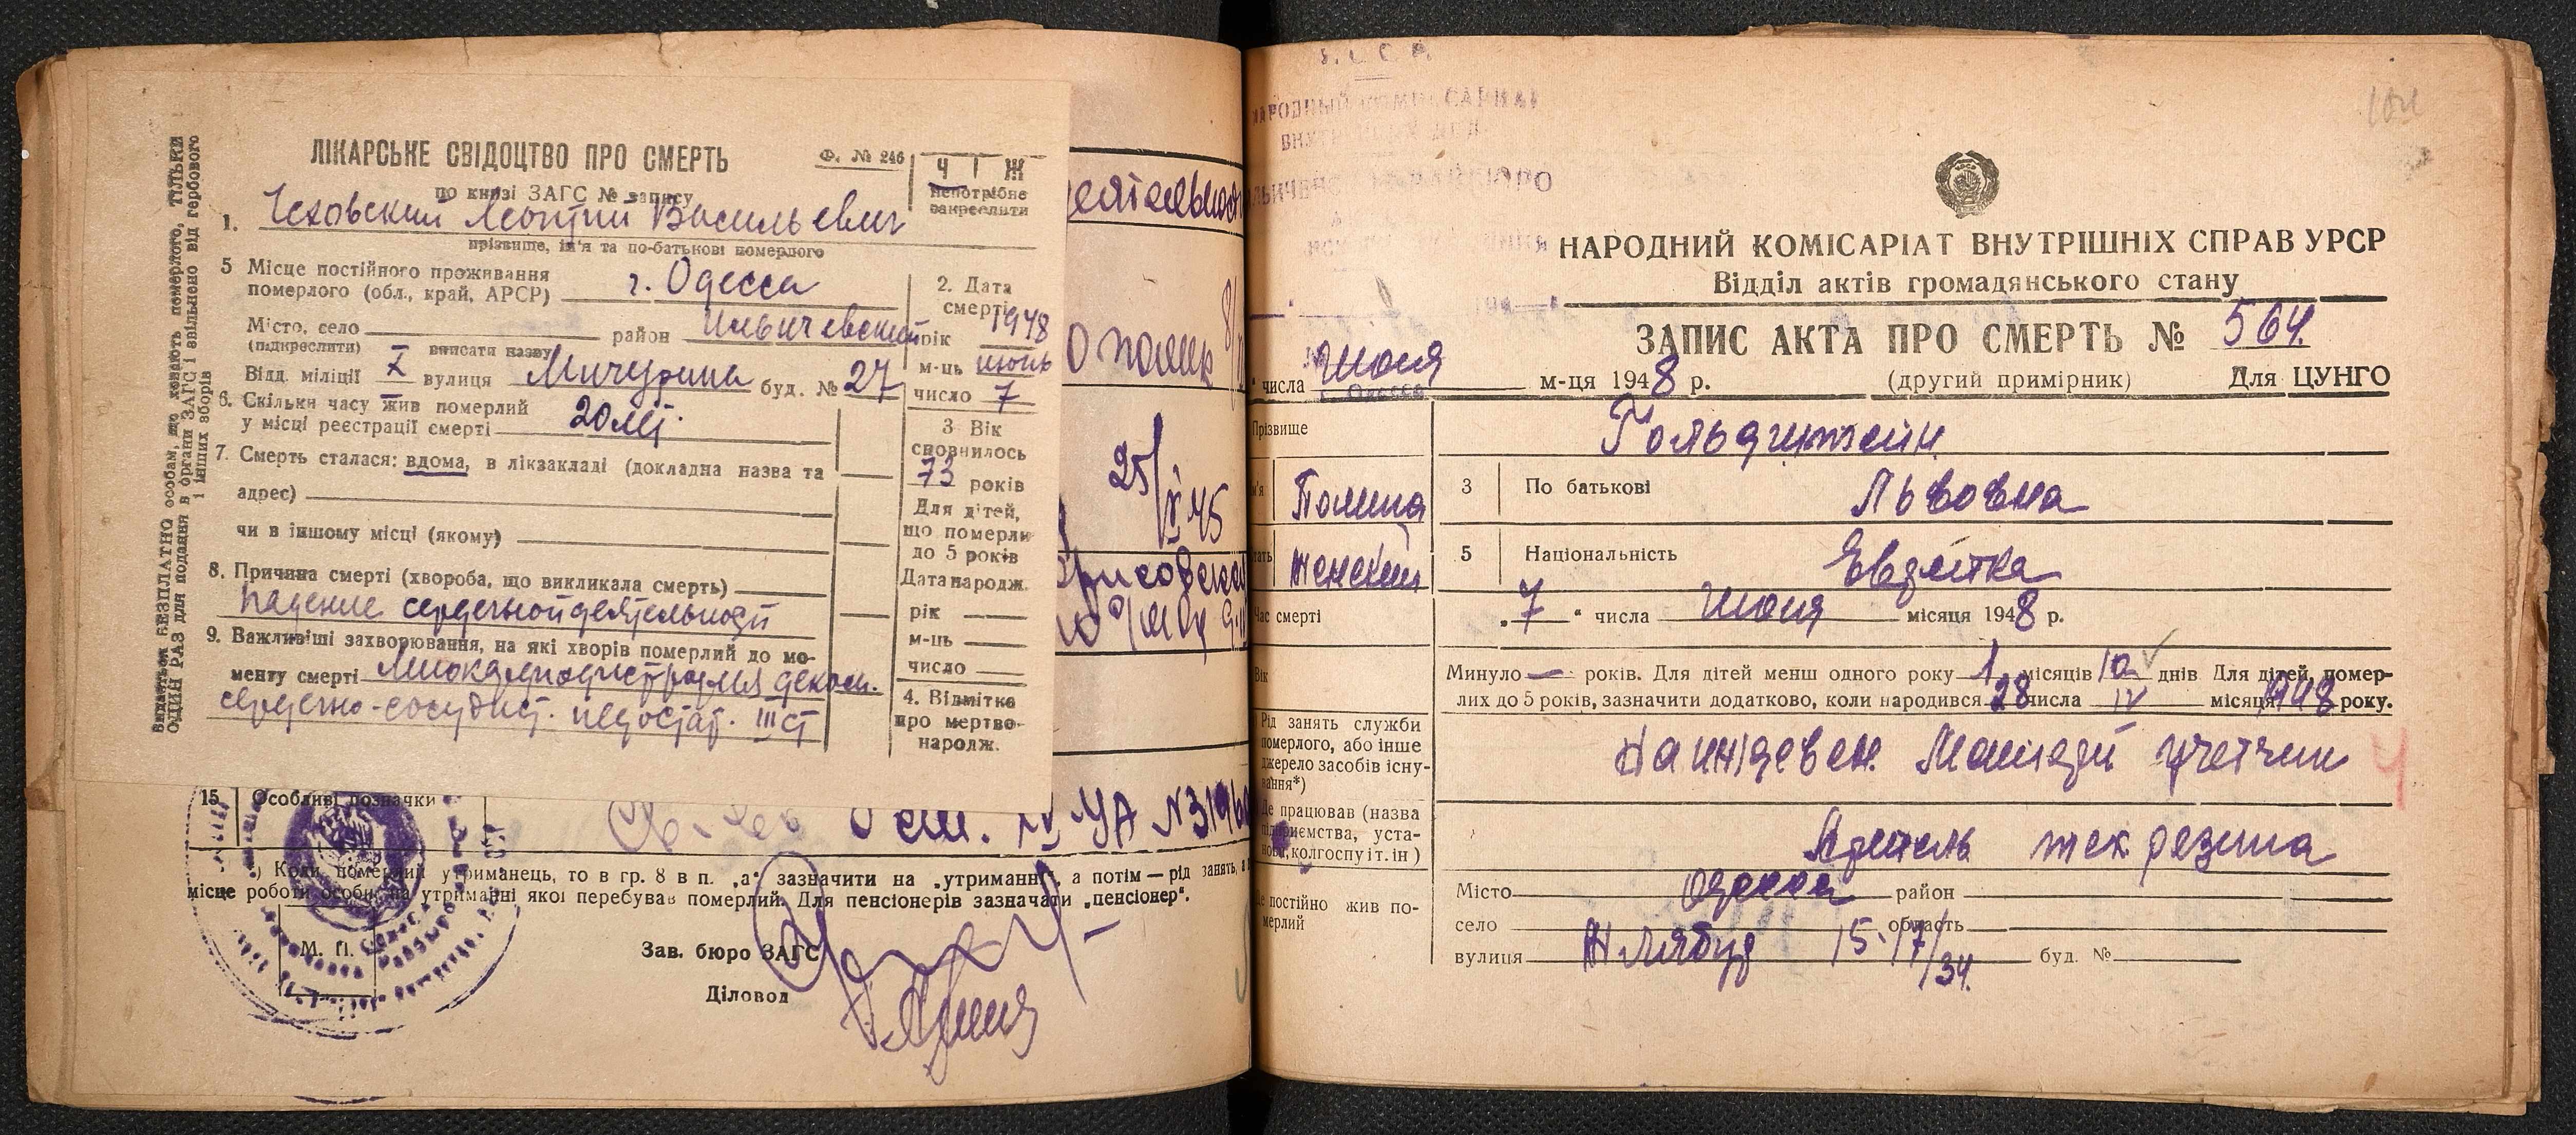 Видається БЕЗПЛАТНО особам, що ховають померлого, ТІЛЬКИ
ОДИН РАЗ для подання в органи ЗАГС і звільнено від гербового
і інших зборів
ЛІКАРСЬКЕ СВІДОЦТВО ПРО СМЕРТЬ
Ф. № 246
Ч | Ж
непотрібне
закреслити
по книзі ЗАГС № запису
1. Чеховский Леонтий Васильевич
прізвище, ім'я та по-батькові померлого
5 Місце постійного проживання
померлого (обл., край, АРСР) г. Одесса
Місто, село район Ильичевский
(підкреслити) вписати назву
Відд. міліції X вулиця Мичурина буд. № 27
6. Скільки часу жив померлий
у місці реєстрації смерті 20 лет.
7. Смерть сталася: вдома, в лікзакладі (докладна назва та
адрес)
чи в іншому місці (якому)
8. Причина смерті (хвороба, що викликала смерть)
падение сердечной деятельности
9. Важливіші захворювання, на які хворів померлий до мо-
менту смерті Миокардиодистрофия декомп.
сердечно-сосудист. недостат. III ст
2. Дата
смерті
рік 1948
м-ць июнь
число 7
3 Вік
сповнилось
73 років
Для дітей,
що померли
до 5 років
Дата народж.
рік
м-ць
число
4. Відмітка
про мертво-
народж.
25/X 45
15 Особливі позначки
УА №3196
*) Коли померлий утриманець, то в гр. 8 в п. „а" зазначити на „утриманні", а потім — рід занять, а
місце роботи особи, на утриманні якої перебував померлий. Для пенсіонерів зазначати „пенсіонер".
М. П.
Зав. бюро ЗАГС
Діловод
НАРОДНЫЙ КОМИССАРИАТ
НАРОДНИЙ КОМІСАРІАТ ВНУТРІШНІХ СПРАВ УРСР
Відділ актів громадянського стану
ЗАПИС АКТА ПРО СМЕРТЬ № 564.
" числа Июня м-ця 1948 р. (другий примірник) Для ЦУНГО
г. Одесса
Прізвище Гольдштейн
м'я Полина 3 По батькові Львовна
тать Женский 5 Національність Еврейка
Час смерті „7" числа Июня місяця 1948 р.
Вік Минуло — років. Для дітей менш одного року 1 місяців 10 днів Для дітей, помер-
лих до 5 років, зазначити додатково, коли народився 28 числа IV місяця 1948 року.
Рід занять служби
померлого, або інше
джерело засобів існу-
вання*)
На иждевен. Матери учетчик
Де працював (назва
підприємства, уста-
нови, колгоспу і т. ін)
Артель
Де постійно жив по-
мерлий
Місто Одесса район
село область
вулиця Желябуд 15·17/34. буд. №